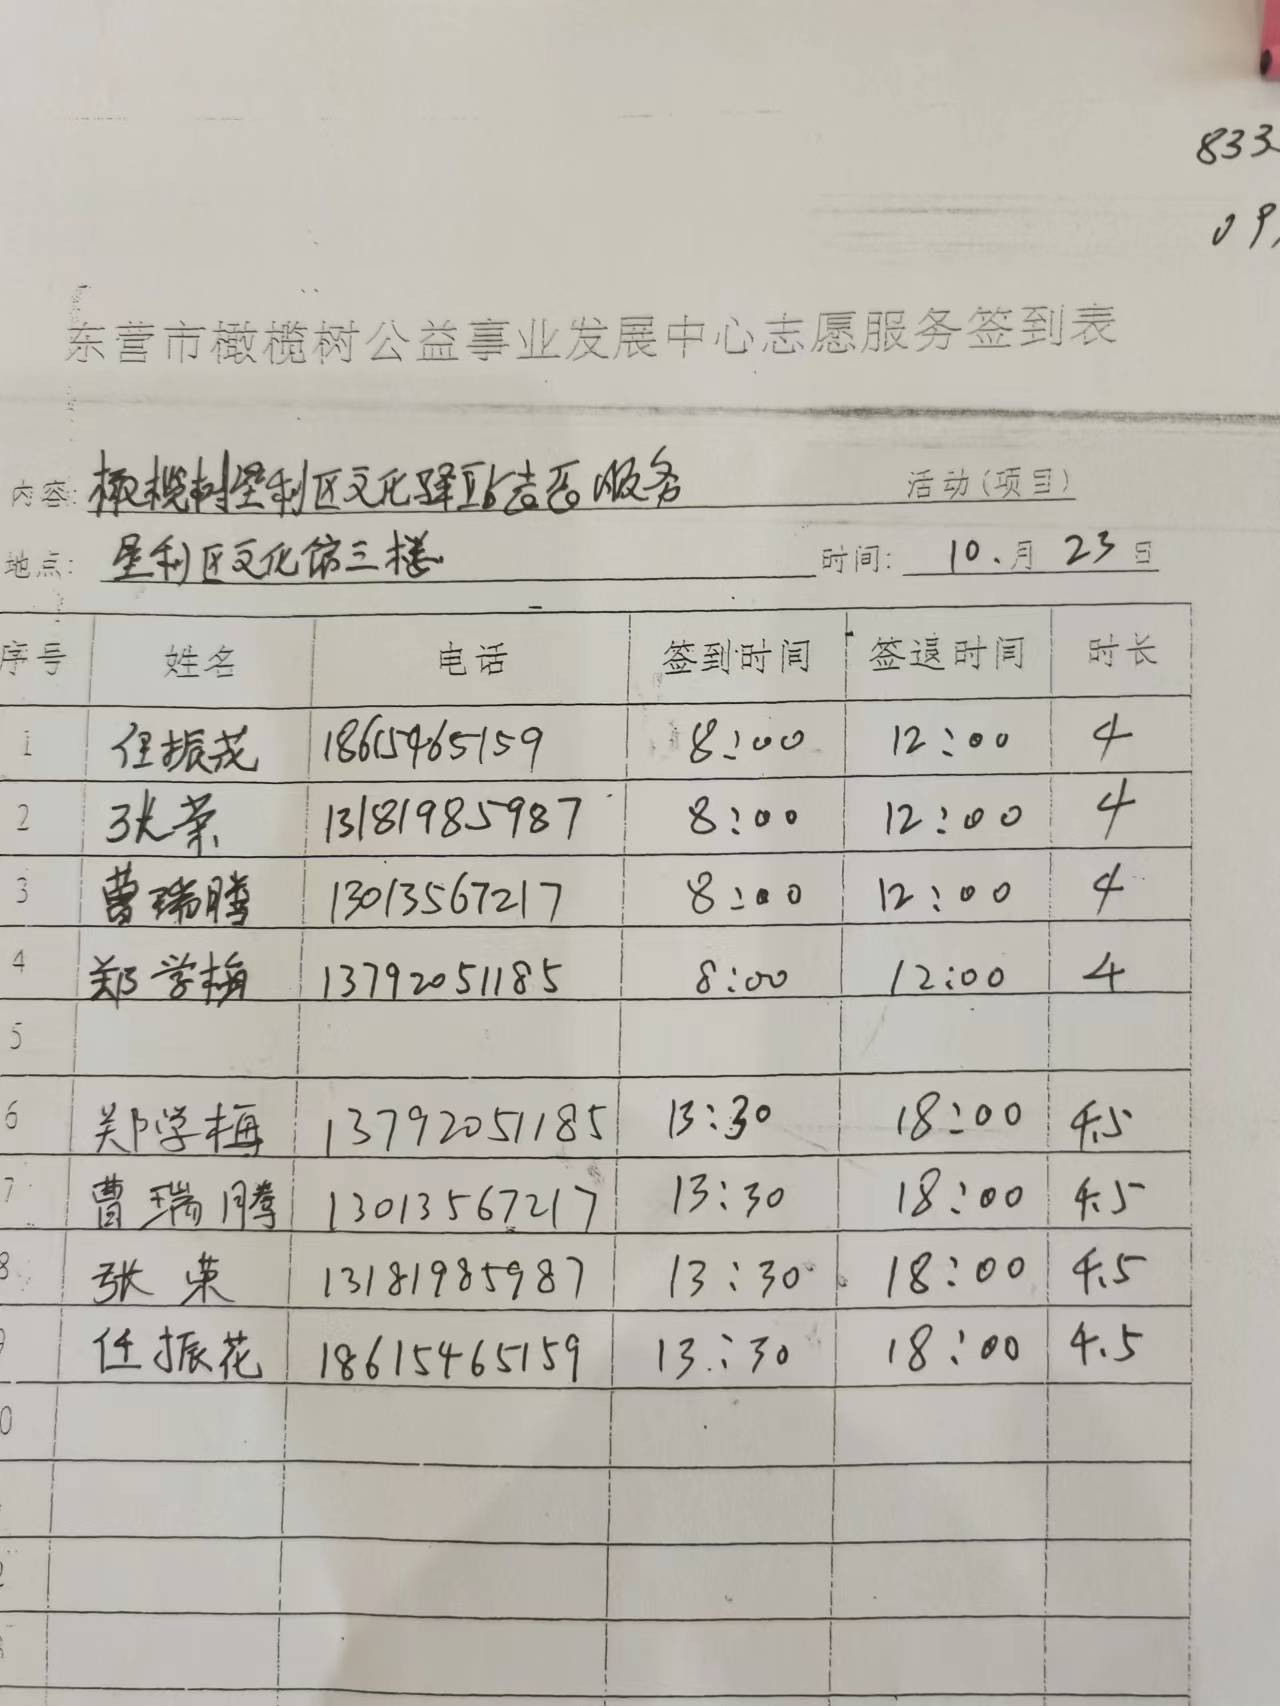 833
09
东营市橄榄树公益事业发展中心志愿服务签到表
内容: 橄榄树垦利区文化驿站志愿服务 活动(项目)
地点: 垦利区文化馆三楼 时间: 10.月 23日
序号 姓名 电话 签到时间 签退时间 时长
1 任振花 18615465159 8:00 12:00 4
2 张荣 13181985987 8:00 12:00 4
3 曹瑞腾 13013567217 8:00 12:00 4
4 郑学梅 13792051185 8:00 12:00 4
5
6 郑学梅 13792051185 13:30 18:00 4.5
7 曹瑞腾 13013567217 13:30 18:00 4.5
8 张荣 13181985987 13:30 18:00 4.5
9 任振花 18615465159 13:30 18:00 4.5
0
2